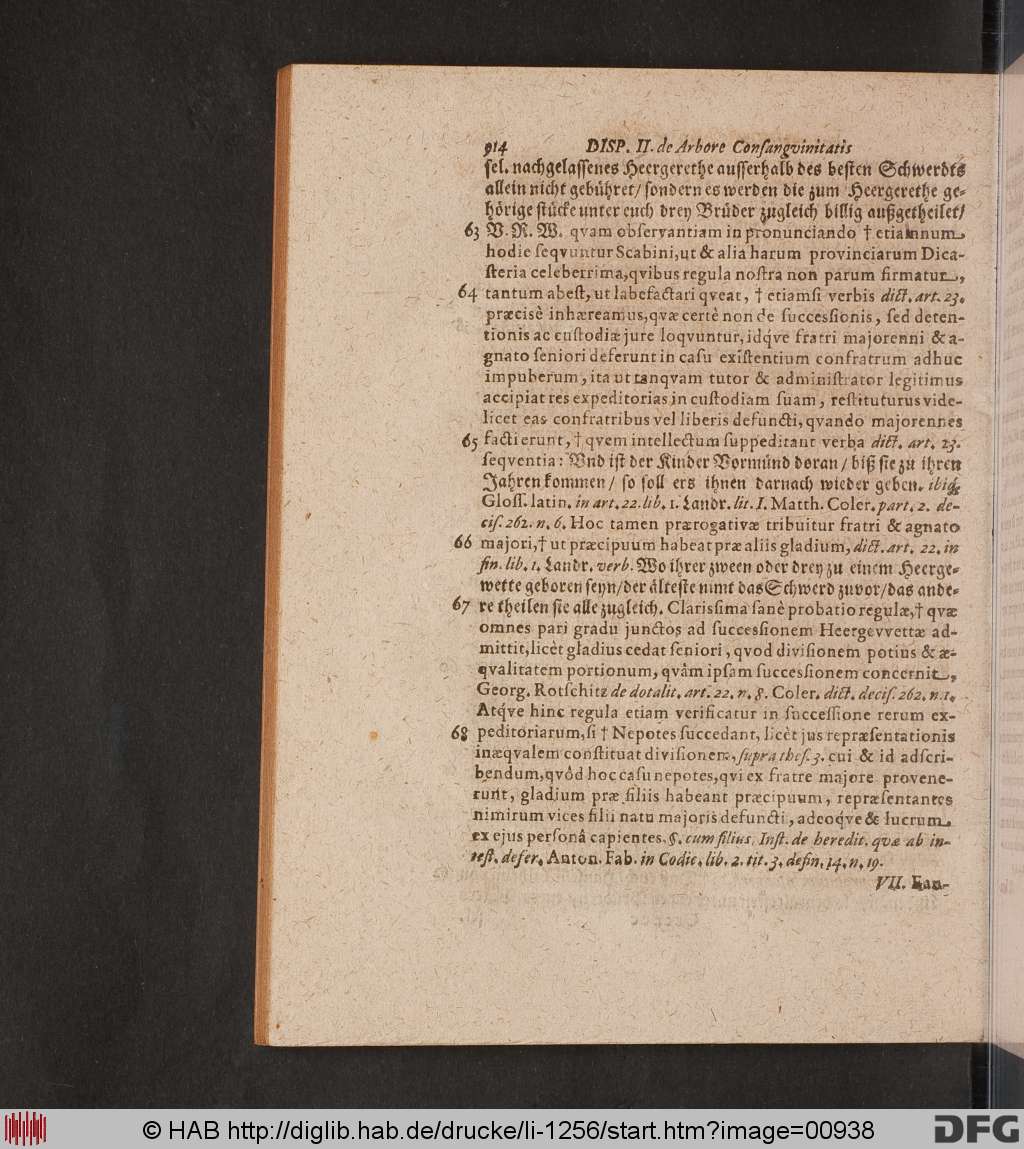 914 DISP. II. de Arbore Consangvinitatis
sel. nachgelassenes Heergerethe ausserhalb des besten Schwerdts
allein nicht gebühret/ sondern es werden die zum Heergerethe ge-
hörige stücke unter euch drey Brüder zugleich billig außgetheilet/
63 V. R. W. qvam observantiam in pronunciando † etiamnum
hodie seqvuntur Scabini, ut & alia harum provinciarum Dica-
steria celeberrima, qvibus regula nostra non parum firmatur,
64 tantum abest, ut labefactari qveat, † etiamsi verbis dict. art. 23.
præcisè inhæreamus, qvæ certè non de successionis, sed deten-
tionis ac custodiæ jure loqvuntur, idq́ve fratri majorenni & a-
gnato seniori deferunt in casu existentium confratrum adhuc
impuberum, ita ut tanqvam tutor & administrator legitimus
accipiat res expeditorias in custodiam suam, restituturus vide-
licet eas confratribus vel liberis defuncti, qvando majorennes
65 facti erunt, † qvem intellectum suppeditant verba dict. art. 23.
seqventia: Vnd ist der Kinder Vormünd doran/ biß sie zu ihren
Jahren kommen/ so soll ers ihnen darnach wieder geben. ibiq;
Gloss. latin. in art. 22. lib. 1. Landr. lit. I. Matth. Coler. part. 2. de-
cis. 262. n. 6. Hoc tamen prærogativæ tribuitur fratri & agnato
66 majori, † ut præcipuum habeat præ aliis gladium, dict. art. 22. in
fin. lib. 1. Landr. verb. Wo ihrer zween oder drey zu einem Heerge-
wette geboren seyn/ der älteste nimt das Schwerd zuvor/ das ande-
67 re theilen sie alle zugleich. Clarissima sanè probatio regulæ, † qvæ
omnes pari gradu junctos ad successionem Heergevvettæ ad-
mittit, licèt gladius cedat seniori, qvod divisionem potius & æ-
qvalitatem portionum, qvàm ipsam successionem concernit,
Georg. Rotschitz de dotalit. art. 22. n. 8. Coler. dict. decis. 262. n. 1.
Atq́ve hinc regula etiam verificatur in successione rerum ex-
68 peditoriarum, si † Nepotes succedant, licèt jus repræsentationis
inæqvalem constituat divisionem, supra thes. 3. cui & id adscri-
bendum, qvòd hoc casu nepotes, qvi ex fratre majore provene-
runt, gladium præ filiis habeant præcipuum, repræsentantes
nimirum vices filii natu majoris defuncti, adeoq́ve & lucrum
ex ejus personâ capientes. §. cum filius. Inst. de heredit. qvæ ab in-
test. defer. Anton. Fab. in Codic. lib. 2. tit. 3. defin. 14. n. 19.
VII. Fan-
© HAB http://diglib.hab.de/drucke/li-1256/start.htm?image=00938
DFG